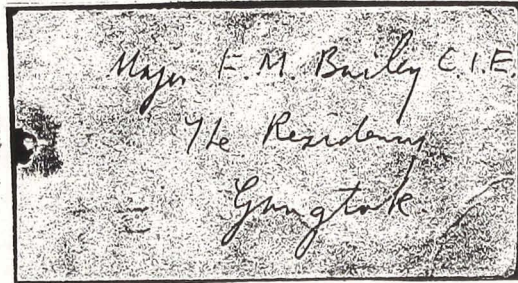 Major F. M. Bailey C.I.E.
The Residency
Gangtok